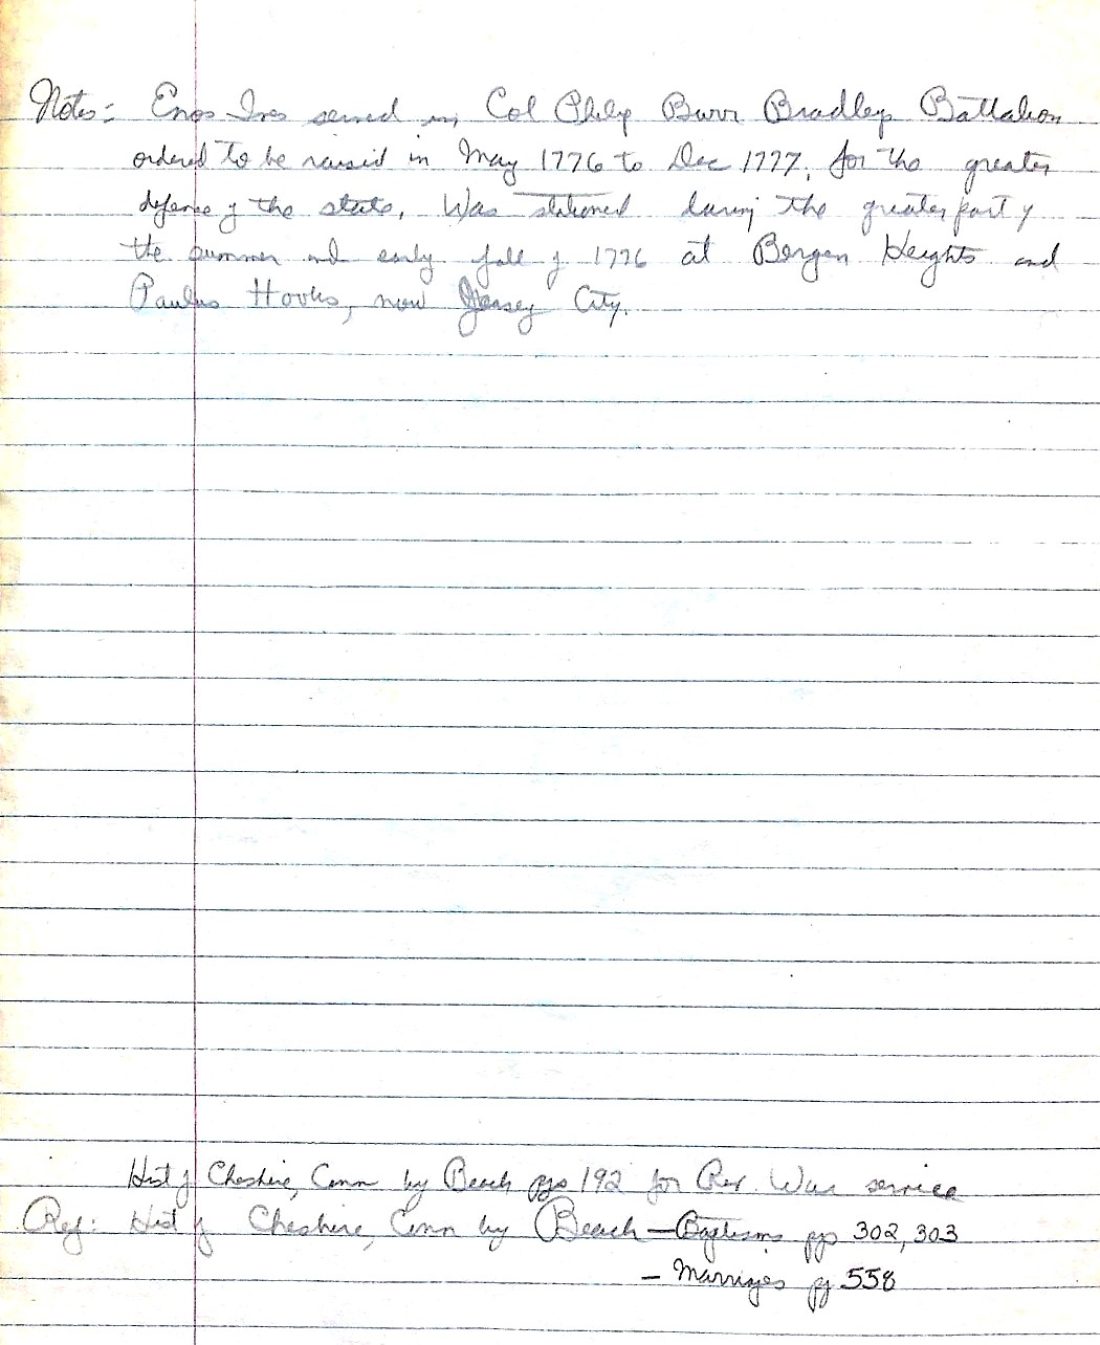 Notes: Enos Ives served in Col Philip Burr Bradley Battalion
ordered to be raised in May 1776 to Dec 1777, for the greater
defense of the state. Was stationed during the greater part of
the summer and early fall of 1776 at Bergen Heights and
Paulus Hooks, now Jersey City.
Hist of Cheshire, Conn by Beach pgs 192 for Rev. War service
Ref: Hist of Cheshire, Conn by Beach — Baptisms pgs 302, 303
— Marriages pg 558